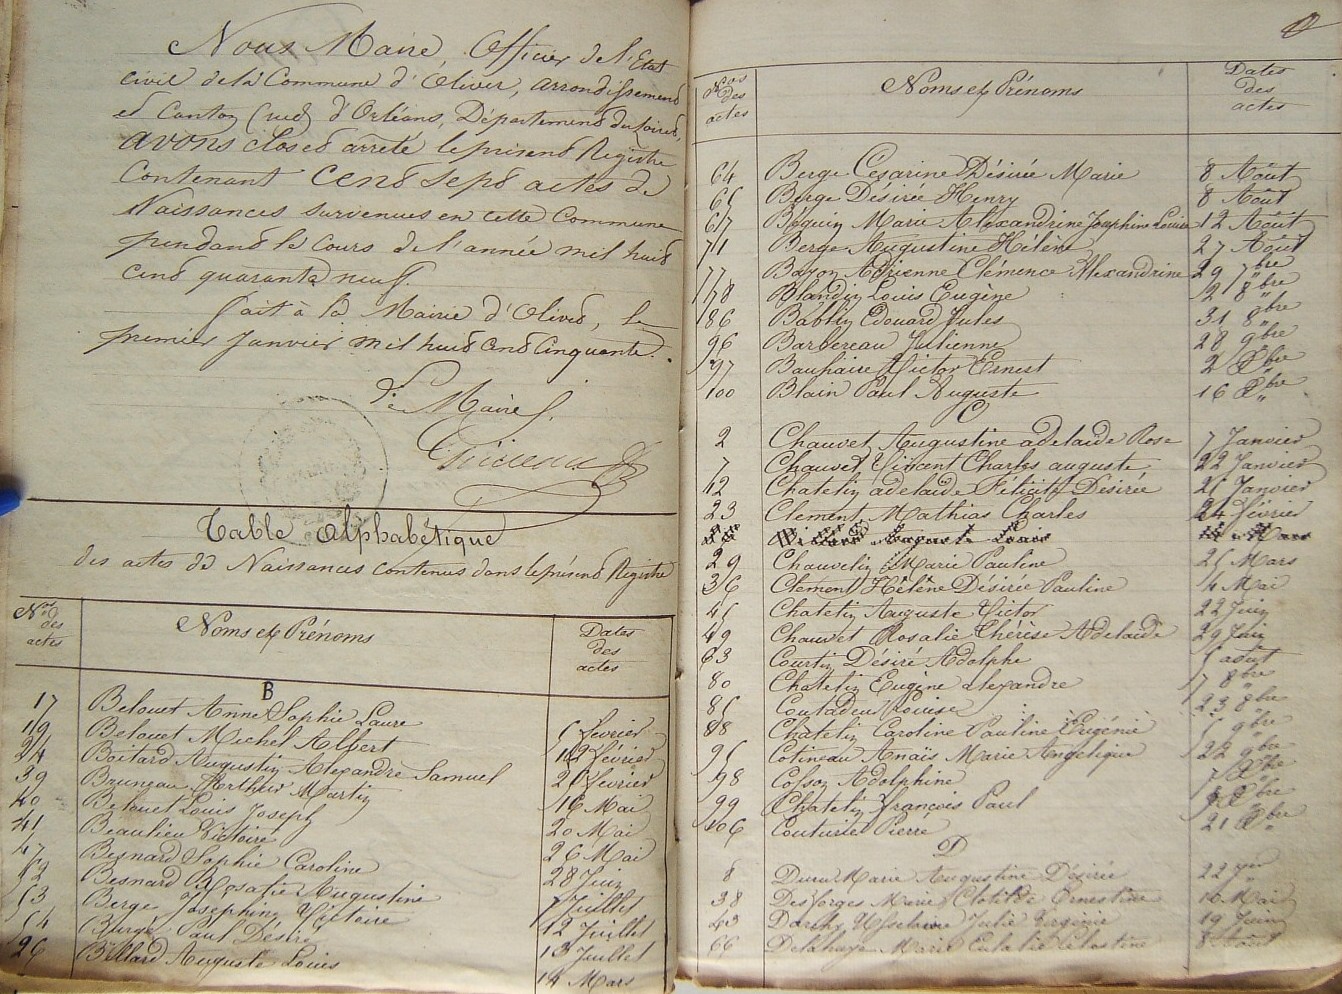 Nous Maire, Officier de l'Etat
civil de la Commune d'Olivet, arrondissement
et Canton (sud) d'Orléans, Département du Loiret,
avons clos et arrêté le présent Registre
Contenant cent sept actes de
Naissances survenues en cette Commune
pendant le cours de l'année mil huit
cent quarante neuf.
fait à la Mairie d'Olivet, le
premier Janvier mil huit cent cinquante.
Le Maire,
Table Alphabétique
des actes de Naissances contenus dans le présent Registre
Nos des actes Noms et Prénoms Dates des actes
B
17 Belouet Anne Sophie Laure 6 février
19 Belouet Michel Albert 12 février
24 Boitard Augustin Alexandre Samuel 26 février
39 Bruneau Arthur Martin 16 Mai
40 Belouet Louis Joseph 20 Mai
41 Beaulieu Victoire 26 Mai
47 Besnard Sophie Caroline 28 Juin
52 Besnard Rosalie Augustine 7 Juillet
53 Berge Joséphine Victoire 12 Juillet
54 Burgé Paul Désiré 13 Juillet
26 Billard Auguste Louis 14 Mars
Nos des actes Noms et Prénoms Dates des actes
64 Berge Cesarine Désirée Marie 8 Août
65 Berge Désirée Henry 8 Août
67 Béguin Marie Alexandrine Joséphine Louise 12 Août
71 Berge Augustine Hélène 27 Août
77 Bayon Adrienne Clémence Alexandrine 29 7bre
78 Blandin Louis Eugène 2 8bre
86 Bablin Edouard Jules 31 8bre
96 Barbereau Julienne 28 9bre
97 Baupaire Victor Ernest 2 Xbre
100 Blain Paul Auguste 16 Xbre
C
2 Chauvet Augustine adelaide Rose 7 Janvier
7 Chauvet Vincent Charles auguste 22 Janvier
12 Chatelin adelaide Félicité Désirée 25 Janvier
23 Clement Mathias Charles 24 février
26 Billard Auguste Louis 14 Mars
29 Chauvelin Marie Pauline 25 Mars
36 Clement Hélène Désirée Pauline 4 Mai
45 Chatelin Auguste Victor 22 Juin
49 Chauvet Rosalie Thérèse Adelaide 29 Juin
63 Courtin Désiré Adolphe 5 août
80 Chatelin Eugène alexandre 7 8bre
85 Coutadeur Louise 23 8bre
88 Chatelin Caroline Pauline Eugénie 5 9bre
95 Cotineau Anaïs Marie Angelique 22 9bre
98 Colson Adolphine 7 Xbre
99 Chatelin François Paul Xbre
106 Couturier Pierre 21 Xbre
D
8 Marie Augustine Désirée 22
38 Desforges Marie Clotilde Ernestine 10 Mai
43 Julie Virginie 19 Juin
66 Delahaye Marie Eulalie Célestine 8 Août